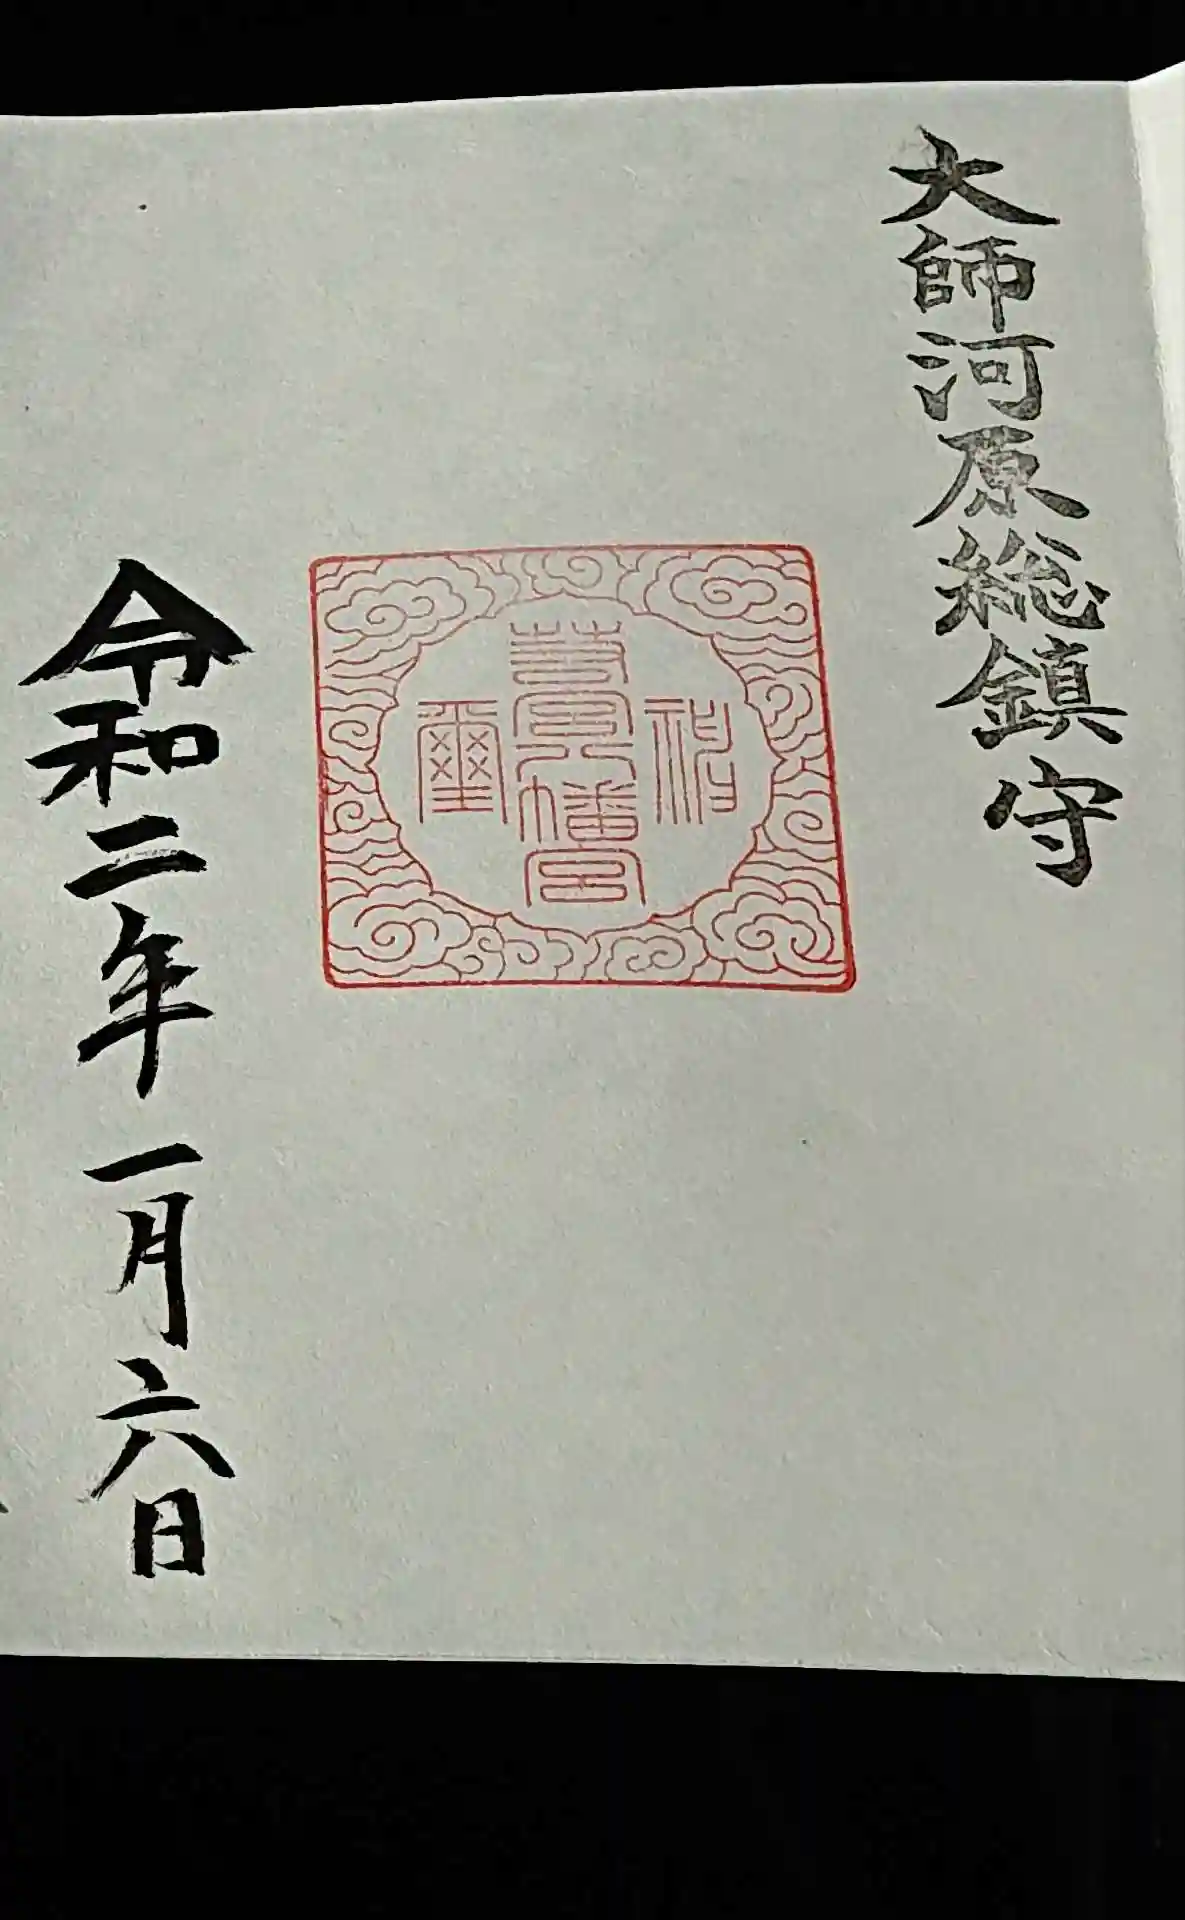 大師河原総鎮守
神
若宮八幡宮
璽
令和二年一月六日